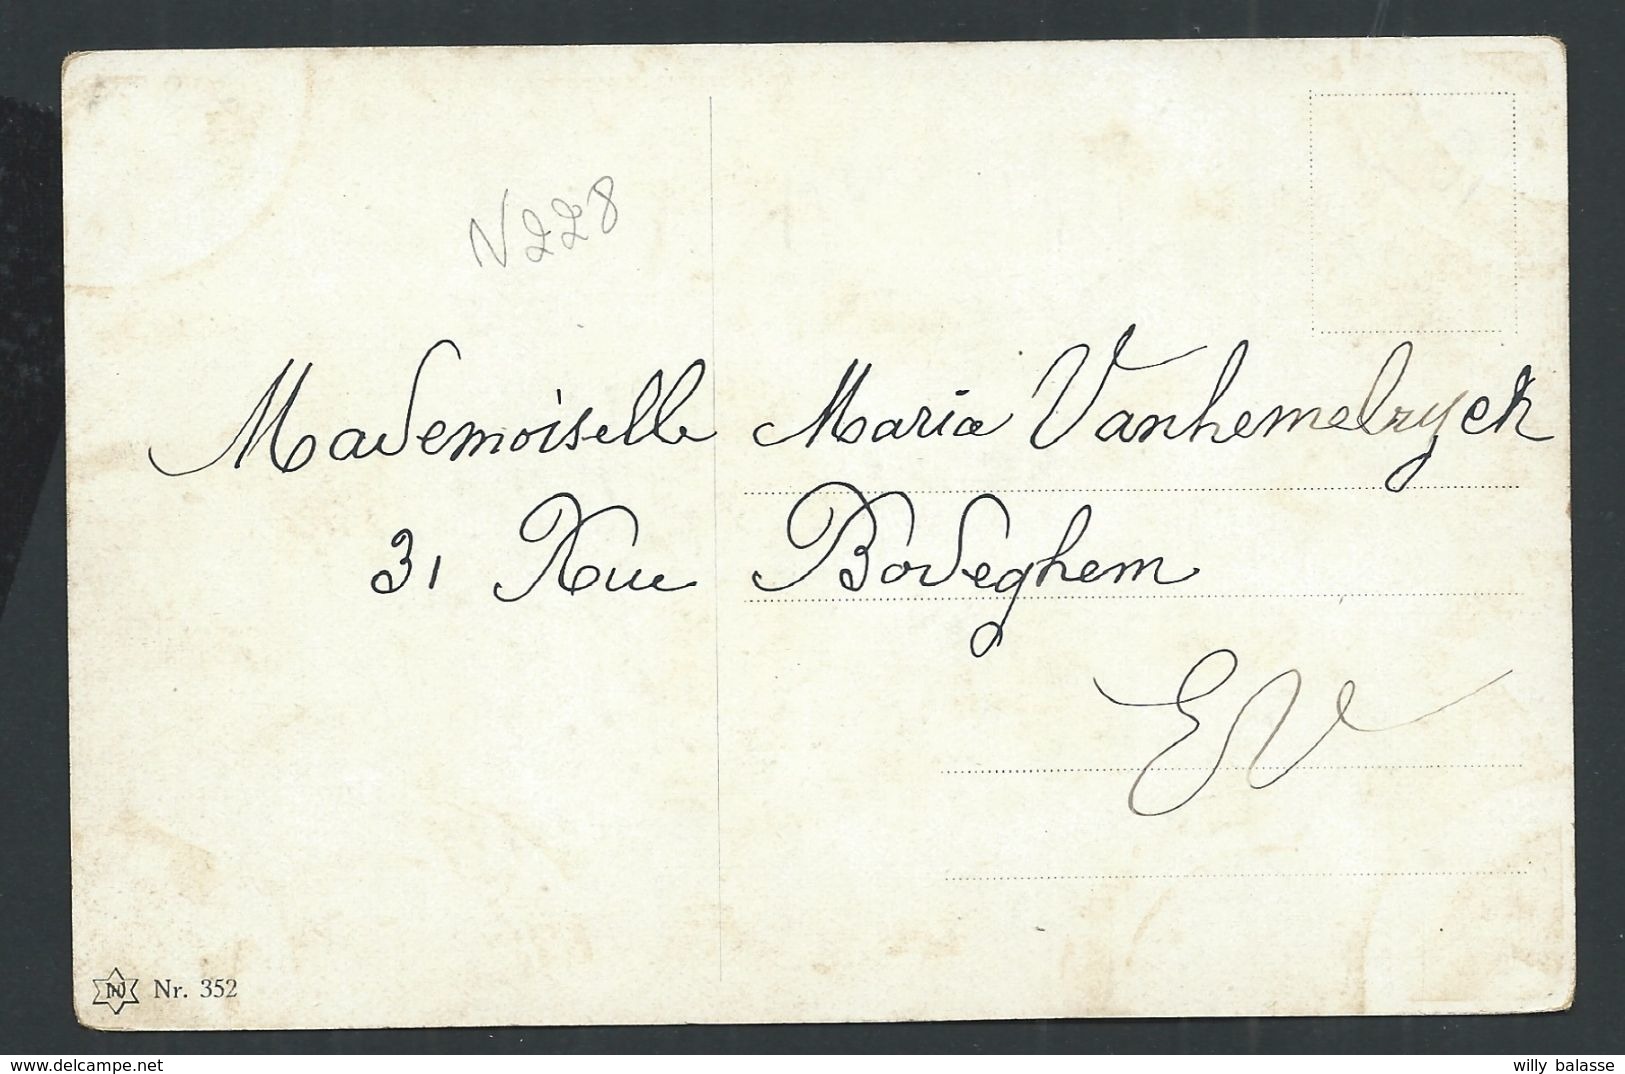 N228
Mademoiselle Maria Vanhemelryck
31 Rue Bodeghem
EV
N Nr. 352
© www.delcampe.net
willy balasse